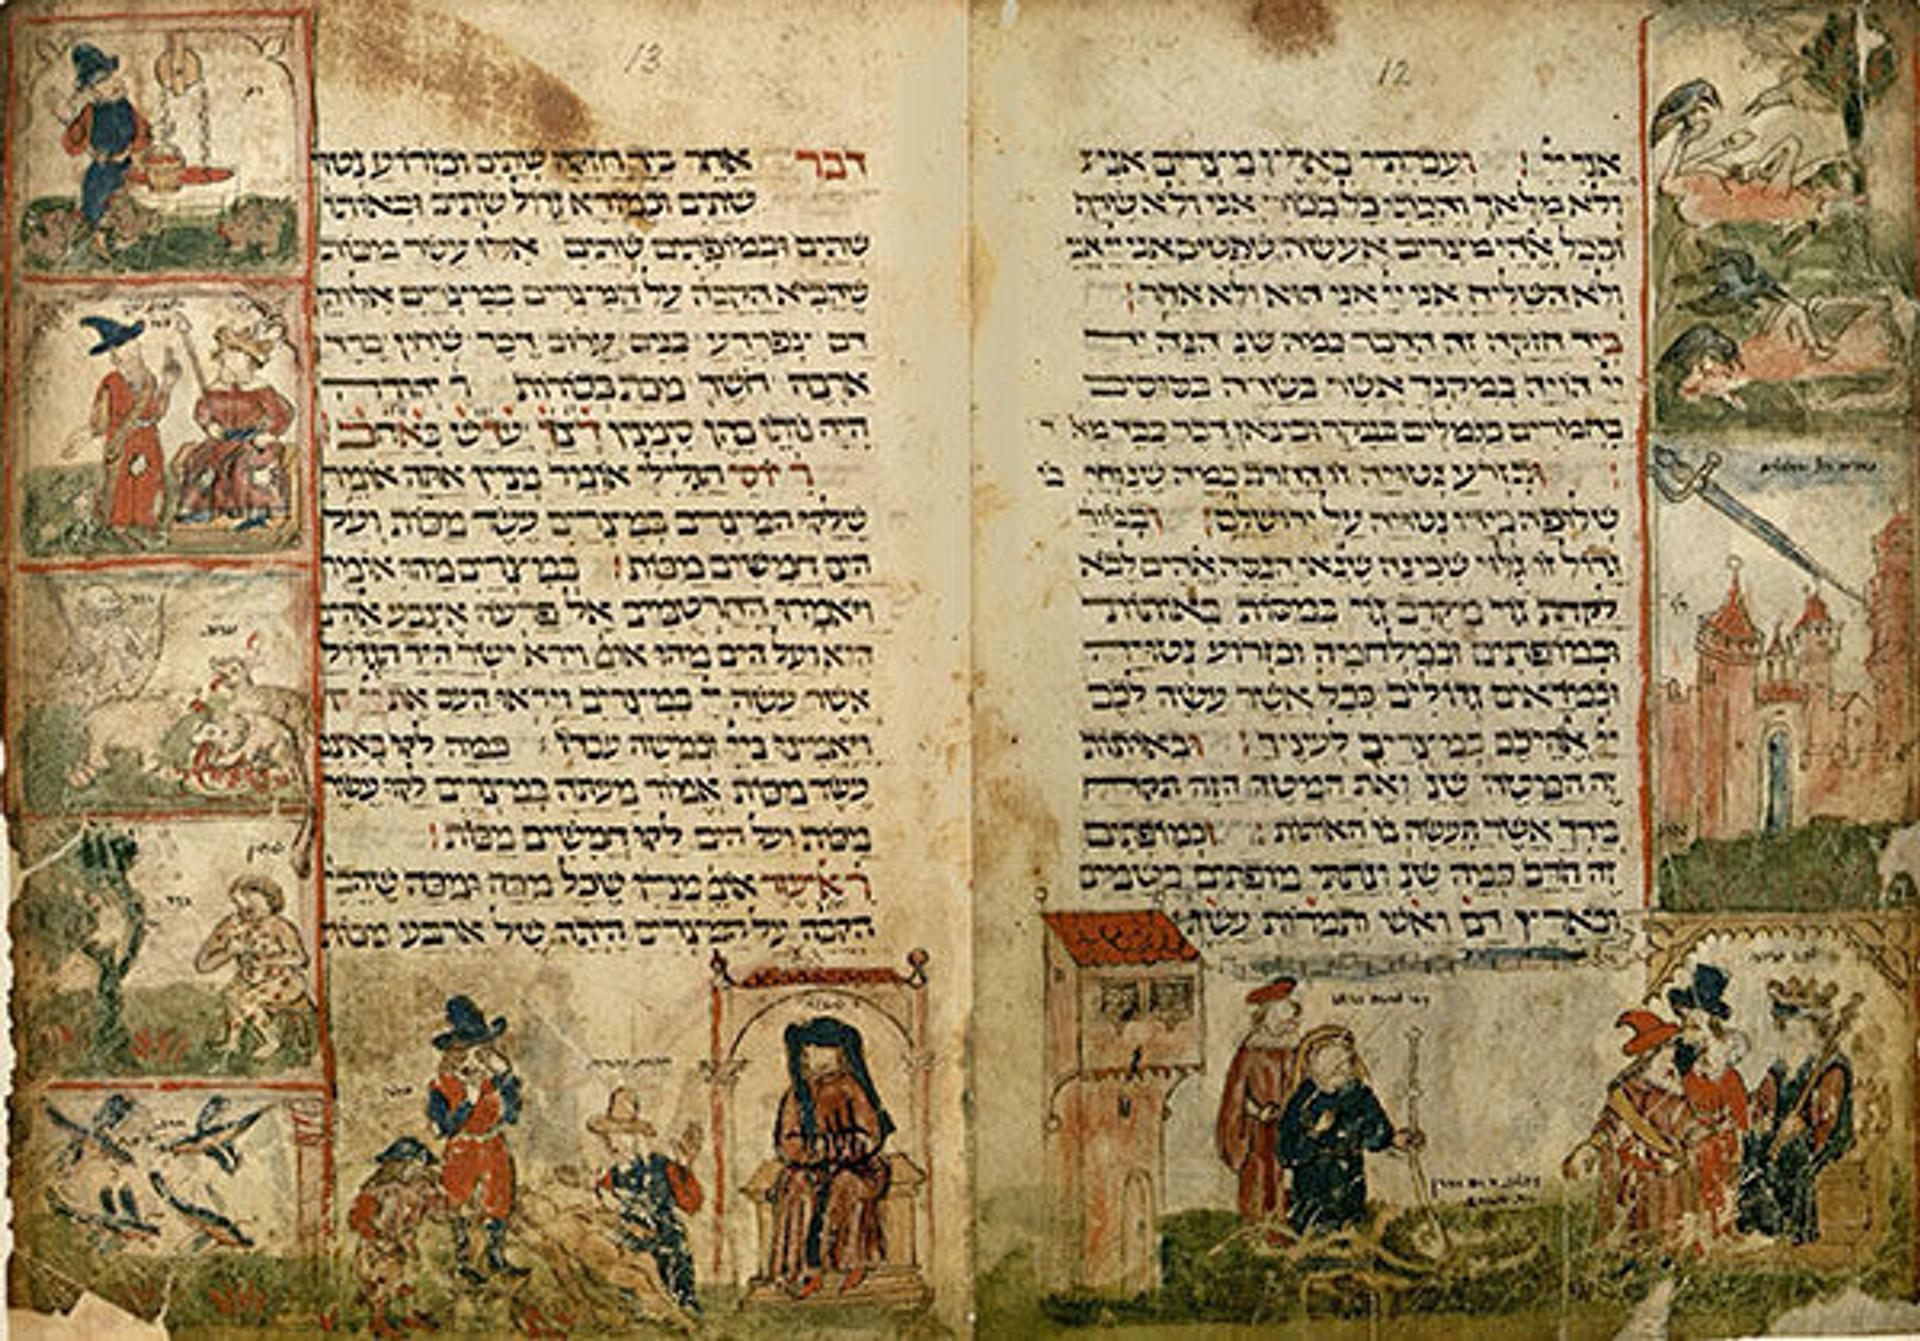 12
אני יי ועברתי בארץ מצרים אני
ולא מלאך והכיתי כל בכור אני ולא שרף
ובכל אהי מצרים אעשה שפטים אני יי אני
ולא השליח אני יי אני הוא ולא אחר
ביד חזקה זה הדבר כמה שנ הנה יד
יי הויה במקנך אשר בשדה בסוסים
בחמורים בגמלים בבקר ובצאן דבר כבד מא
ובזרע נטויה זו החרב כמה שנ
שלופה בידו נטויה על ירושלם
גדול זו גלוי שכינה שנאי הנסה אהים לבא
לקחת גוי מקרב גוי במסות באותות
ובמופתים ובמלחמה ובזרוע נטויה
ובמוראים גדולים ככל אשר עשה לכם
יי אהיכם במצרים לעיניך ובאותות
זה המטה שנ ואת המטה הזה תקח
בידך אשר תעשה בו האותות ובמופתים
זה הדם כמה שנ ונתתי מופתים בשמים
ובארץ דם ואש ותמרות עשן
13
דבר אחר ביד חזקה שתים ובזרוע נטוי
שתים ובמורא גדול שתים ובאותו
שתים ובמופתים שתים אלו עשר מכות
שהביא הקבה על המצרים במצרים אלוהן
דם צפרדע כנים ערוב דבר שחין ברד
ארבה חשך מכת בכורות ר יהודה
היה נותן בהן סמנין דצך עדש באחב
ר יוסי הגלילי אומר מנין אתה אומר
שלקו המצרים במצרים עשר מכות ועל
הים חמשים מכות במצרים מהו אומר
ויאמרו החרטמים אל פרעה אצבע אהים
היא ועל הים מהו אומ וירא ישר היד הגדול
אשר עשה יי במצרים ויראו העם את יי
ויאמינו ביי ובמשה עבדו כמה לקו באצב
עשר מכות אמור מעתה במצרים לקו עשר
מכות ועל הים לקו חמשים מכות
ר איעזר אומ מנין שכל מכה ומכה שהבי
הקבה על המצרים היתה של ארבע מכות
דם
שחין
ברד